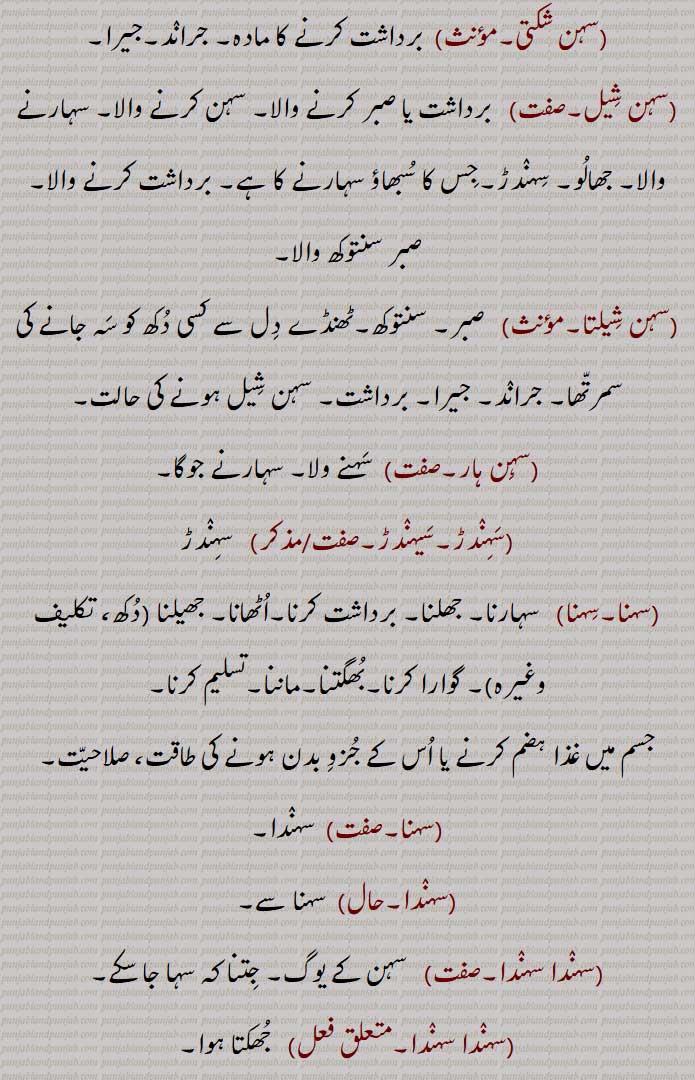 (سہن شکتی۔مؤنث) برداشت کرنے کا مادہ۔ جراند۔جیرا۔
(سہن شِیل۔صفت) برداشت یا صبر کرنے والا۔ سہن کرنے والا۔ سہارنے
والا۔ جھالُو۔ سِہن٘دڑ۔جِس کا سُبھاؤ سہارنے کا ہے۔ برداشت کرنے والا۔
صبر سنتوکھ والا۔
(سہن شِیلتا۔مؤنث) صبر۔ سنتوکھ۔ٹھنڈے دِل سے کسی دُکھ کو سَہ جانے کی
سمرتّھا۔ جران٘د۔ جیرا۔ برداشت۔ سہن شِیل ہونے کی حالت۔
(سہِن ہار۔صفت) سَہنے ولا۔ سہارنے جوگا۔
(سَہِن٘دڑ۔سَیہن٘دڑ۔صفت/مذکر) سہِن٘دڑ
(سہنا۔سِہنا) سہارنا۔ جھلنا۔ برداشت کرنا۔اُٹھانا۔ جھیلنا (دُکھ، تکلیف
وغیرہ)۔ گوارا کرنا۔بُھگتنا۔ماننا۔تسلیم کرنا۔
جسم میں غذا ہضم کرنے یا اُس کے جُزوِ بدن ہونے کی طاقت، صلاحیّت۔
(سہنا۔صفت) سہن٘دا۔
(سہن٘دا۔حال) سہنا سے۔
(سہن٘دا سہن٘دا۔صفت) سہن کے یوگ۔ جِتنا کہ سہا جا سکے۔
(سہن٘دا سہن٘دا۔متعلق فعل) جُھکتا ہوا۔